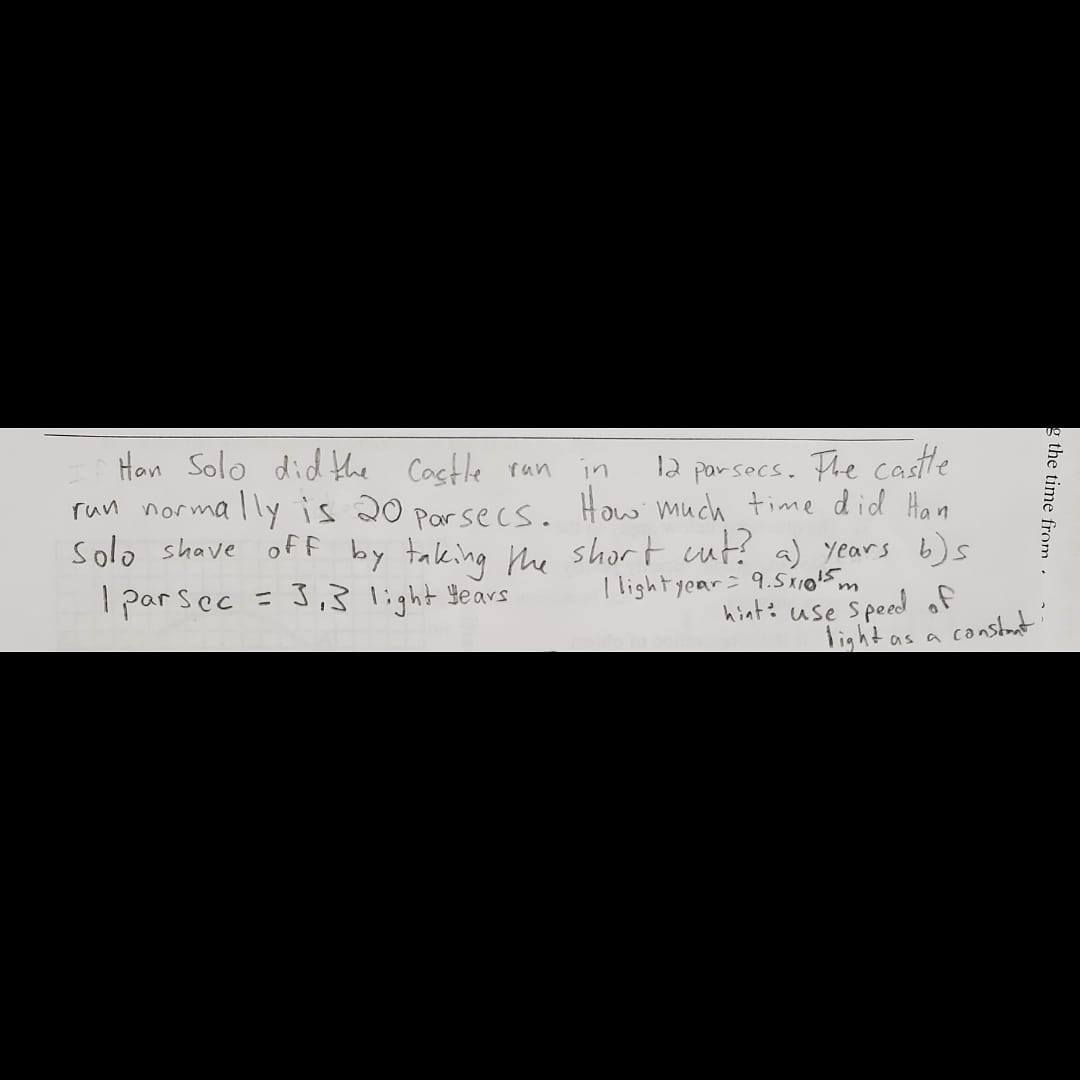 Han Solo did the Castle run in 12 parsecs. The castle
run normally is 20 parsecs. How much time did Han
Solo shave off by taking the short cut? a) years b) s
1 parsec = 3.3 light years
1 light year = 9.5x10¹⁵m
hint: use speed of
light as a constant
g the time from